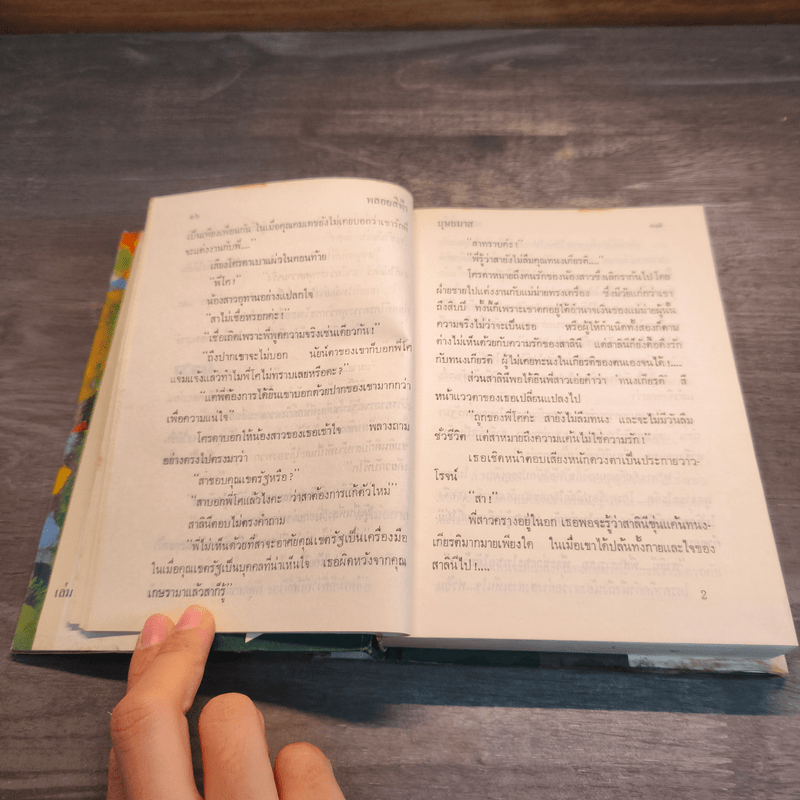 ๑๖
พลอยสีฟ้า
เป็นเพียงเพื่อนกัน ในเมื่อคุณคมเดชยังไม่เคยบอกว่าเขารัก
จะแต่งงานกับพี่...”
เสียงโศรดาเบาแผ่วในตอนท้าย
“พี่โศ!”
น้องสาวอุทานอย่างแปลกใจ
“สาไม่เชื่อหรอกค่ะ!”
“เชื่อเถิดเพราะพี่พูดความจริงเช่นเดียวกัน!”
“ถึงปากเขาจะไม่บอก นัยน์ตาของเขาก็บอกพี่โศ
แจ่มแจ้งแล้วทำไมพี่โศไม่ทราบเลยหรือคะ?”
“แต่พี่ต้องการได้ยินเขาบอกด้วยปากของเขามากกว่า
เพื่อความแน่ใจ”
โศรดาบอกให้น้องสาวของเธอเข้าใจ พลางถาม
อย่างตรงไปตรงมาว่า
“สาชอบคุณเขตรัฐหรือ?”
“สาบอกพี่โศแล้วไงคะ ว่าสาต้องการแก้ตัวใหม่”
สาลินีตอบไม่ตรงคำถาม
“พี่ไม่เห็นด้วยที่สาจะอาศัยคุณเขตรัฐเป็นเครื่องมือ
ในเมื่อคุณเขตรัฐเป็นบุคคลที่น่าเห็นใจ เธอผิดหวังจากคุณ
เกษรามาแล้วสาก็รู้”
เล่ม
บุษยมาส
๑๗
“สาทราบค่ะ!”
“พี่รู้ว่าสายังไม่ลืมคุณทนงเกียรติ....”
โศรดาหมายถึงคนรักของน้องสาวซึ่งเลิกรากันไป โดย
ฝ่ายชายไปแต่งงานกับแม่ม่ายทรงเครื่อง ซึ่งมีวัยแก่กว่าเขา
ถึงสิบปี ทั้งนี้ก็เพราะเขาตกอยู่ใต้อำนาจเงินของแม่ม่ายผู้นั้น
ความจริงไม่ว่าจะเป็นเธอ หรือผู้ให้กำเนิดทั้งสองก็ตาม
ต่างไม่เห็นด้วยกับความรักของสาลินี แต่สาลินีก็ยังดื้อดึงรัก
กับทนงเกียรติ ผู้ไม่เคยทะนงในเกียรติของตนเองจนได้!....
ส่วนสาลินีพอได้ยินพี่สาวเอ่ยคำว่า ‘ทนงเกียรติ’ สี
หน้าแววตาของเธอเปลี่ยนแปลงไป
“ถูกของพี่โศค่ะ สายังไม่ลืมทนง และจะไม่มีวันลืม
ชั่วชีวิต แต่สาหมายถึงความแค้นไม่ใช่ความรัก!”
เธอเชิดหน้าตอบเสียงหนักดวงตาเป็นประกายวาว-
โรจน์
“สา!”
พี่สาวครางอยู่ในอก เธอพอจะรู้ว่าสาลินีขุ่นแค้นทนง-
เกียรติมากมายเพียงใด ในเมื่อเขาได้ปล้นทั้งกายและใจของ
สาลินีไป!....
2